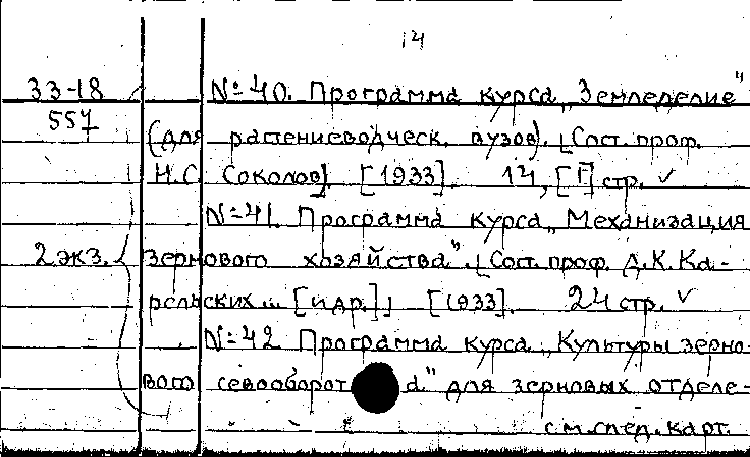 14
33-18 № 40. Программа курса „Земледелие"
557 (для растениеводческ. вузов). [Сост. проф.
Н.С. Соколов]. [1933]. 14, [1] стр. ✓
№ 41. Программа курса „Механизация
2 экз. зернового хозяйства". [Сост. проф. Д.К. Ка-
рельских... [и др.]] [1933]. 24 стр. ✓
№ 42 Программа курса „Культуры зерно-
вого севооборота" для зерновых отделе-
см. след. карт.